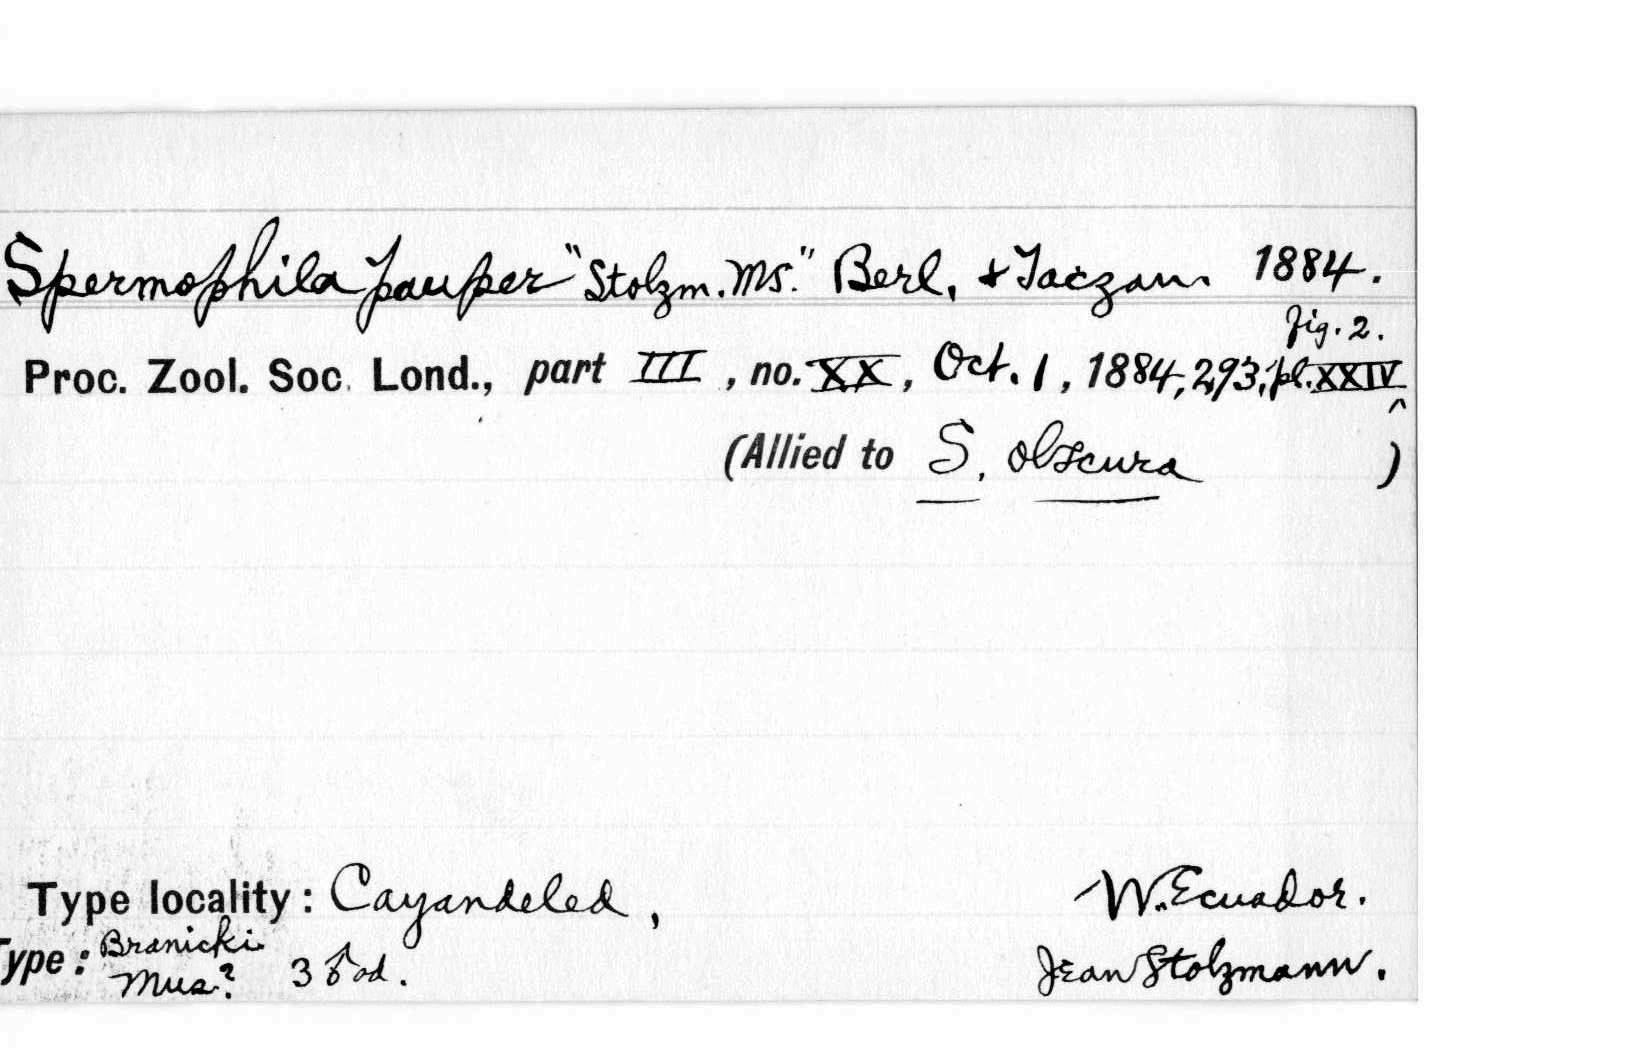 Spermophila pauper "Stolzm. MS." Berl. & Taczan. 1884.
fig. 2.
Proc. Zool. Soc. Lond., part III, no. XX, Oct. 1, 1884, 293, pl. XXIV ^
(Allied to S. obscura )
Type locality: Cayandeled, W. Ecuador.
Type: Branicki Mus? 3 ♂ ad. Jean Stolzmann.